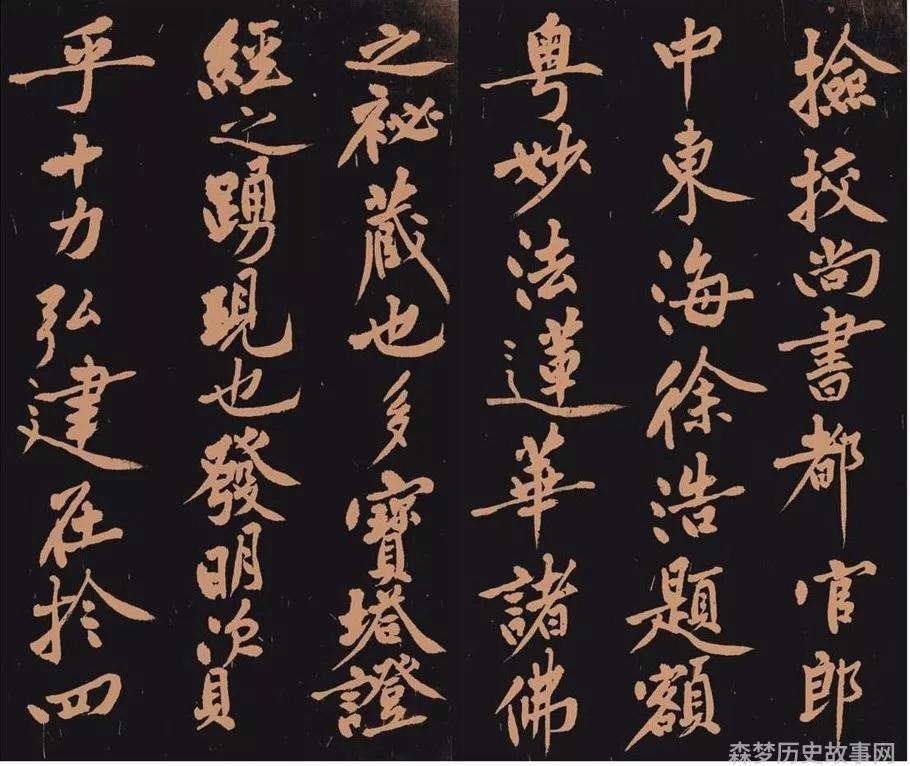 撿挍尚書都官郎
中東海徐浩題額
粤妙法蓮華諸佛
之祕藏也多寶塔證
經之踴現也發明資
乎十力弘建在於四
森梦历史故事网